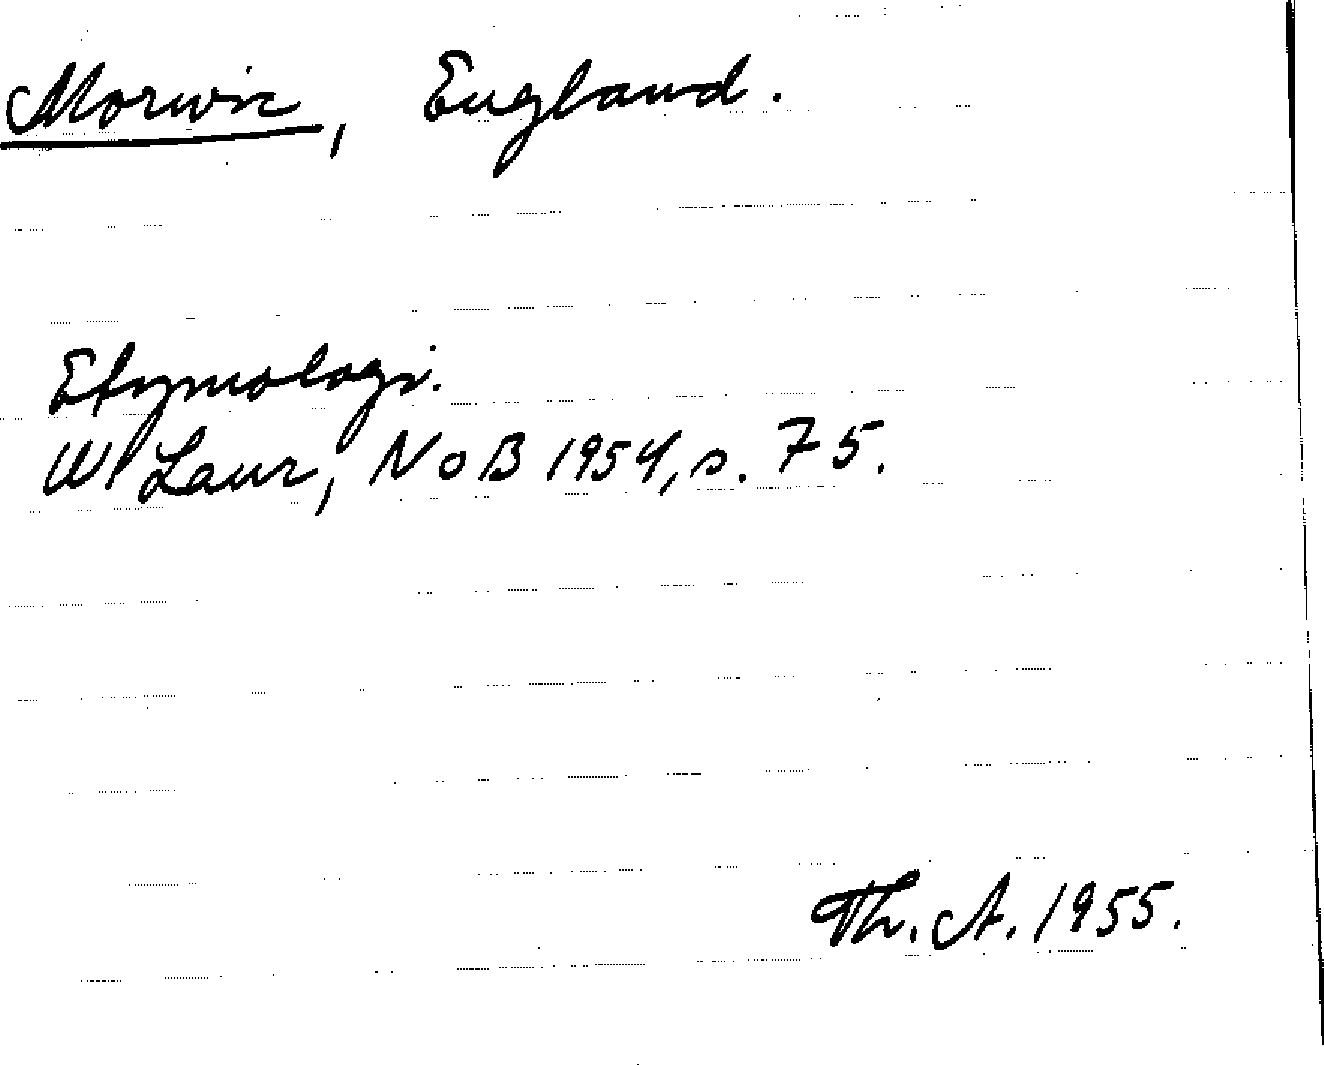 Morwic, England.
Etymologi.
W. Laur, NoB 1954, s. 75.
Th. A. 1955.